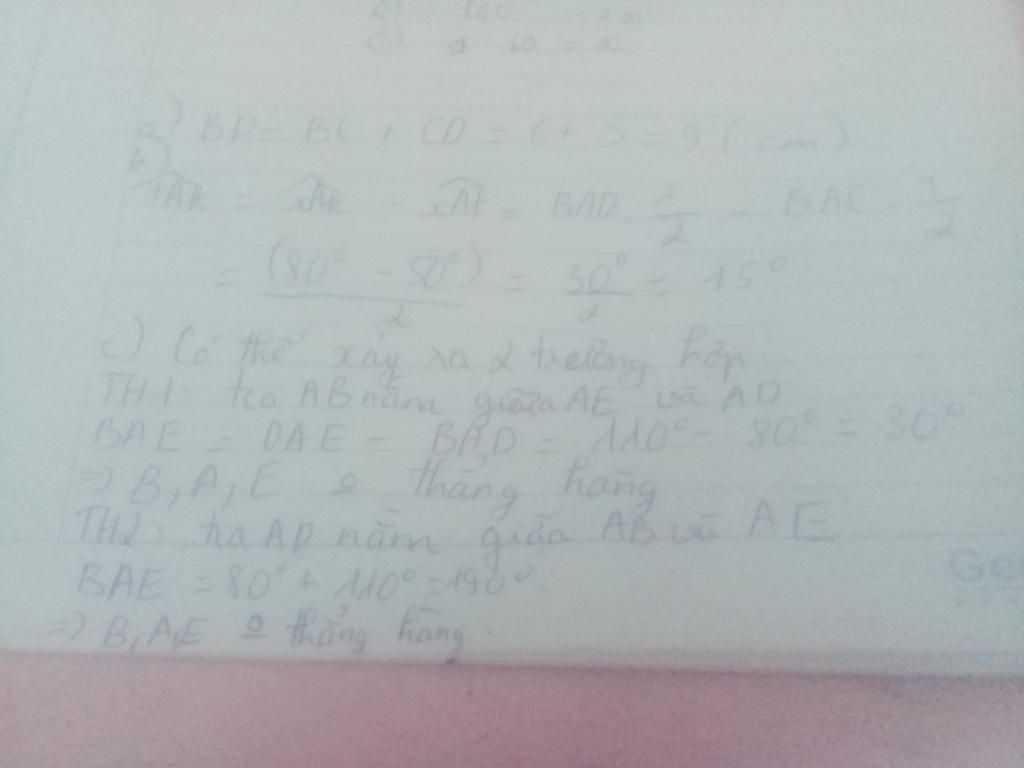 <=> 120 = 2x
<=> 60 = x
a) BD = BC + CD = 6 + 3 = 9 (cm)
b)
tAk = xAk - xAt = BAD . 1/2 - BAC . 1/2
= (80° - 50°)/2 = 30°/2 = 15°
c) Có thể xảy ra 2 trường hợp
TH1: tia AB nằm giữa AE và AD
BAE = DAE - BAD = 110° - 80° = 30°
=> B, A, E o thẳng hàng.
TH2: tia AD nằm giữa AB và AE
BAE = 80° + 110° = 190°
=> B, A, E o thẳng hàng.